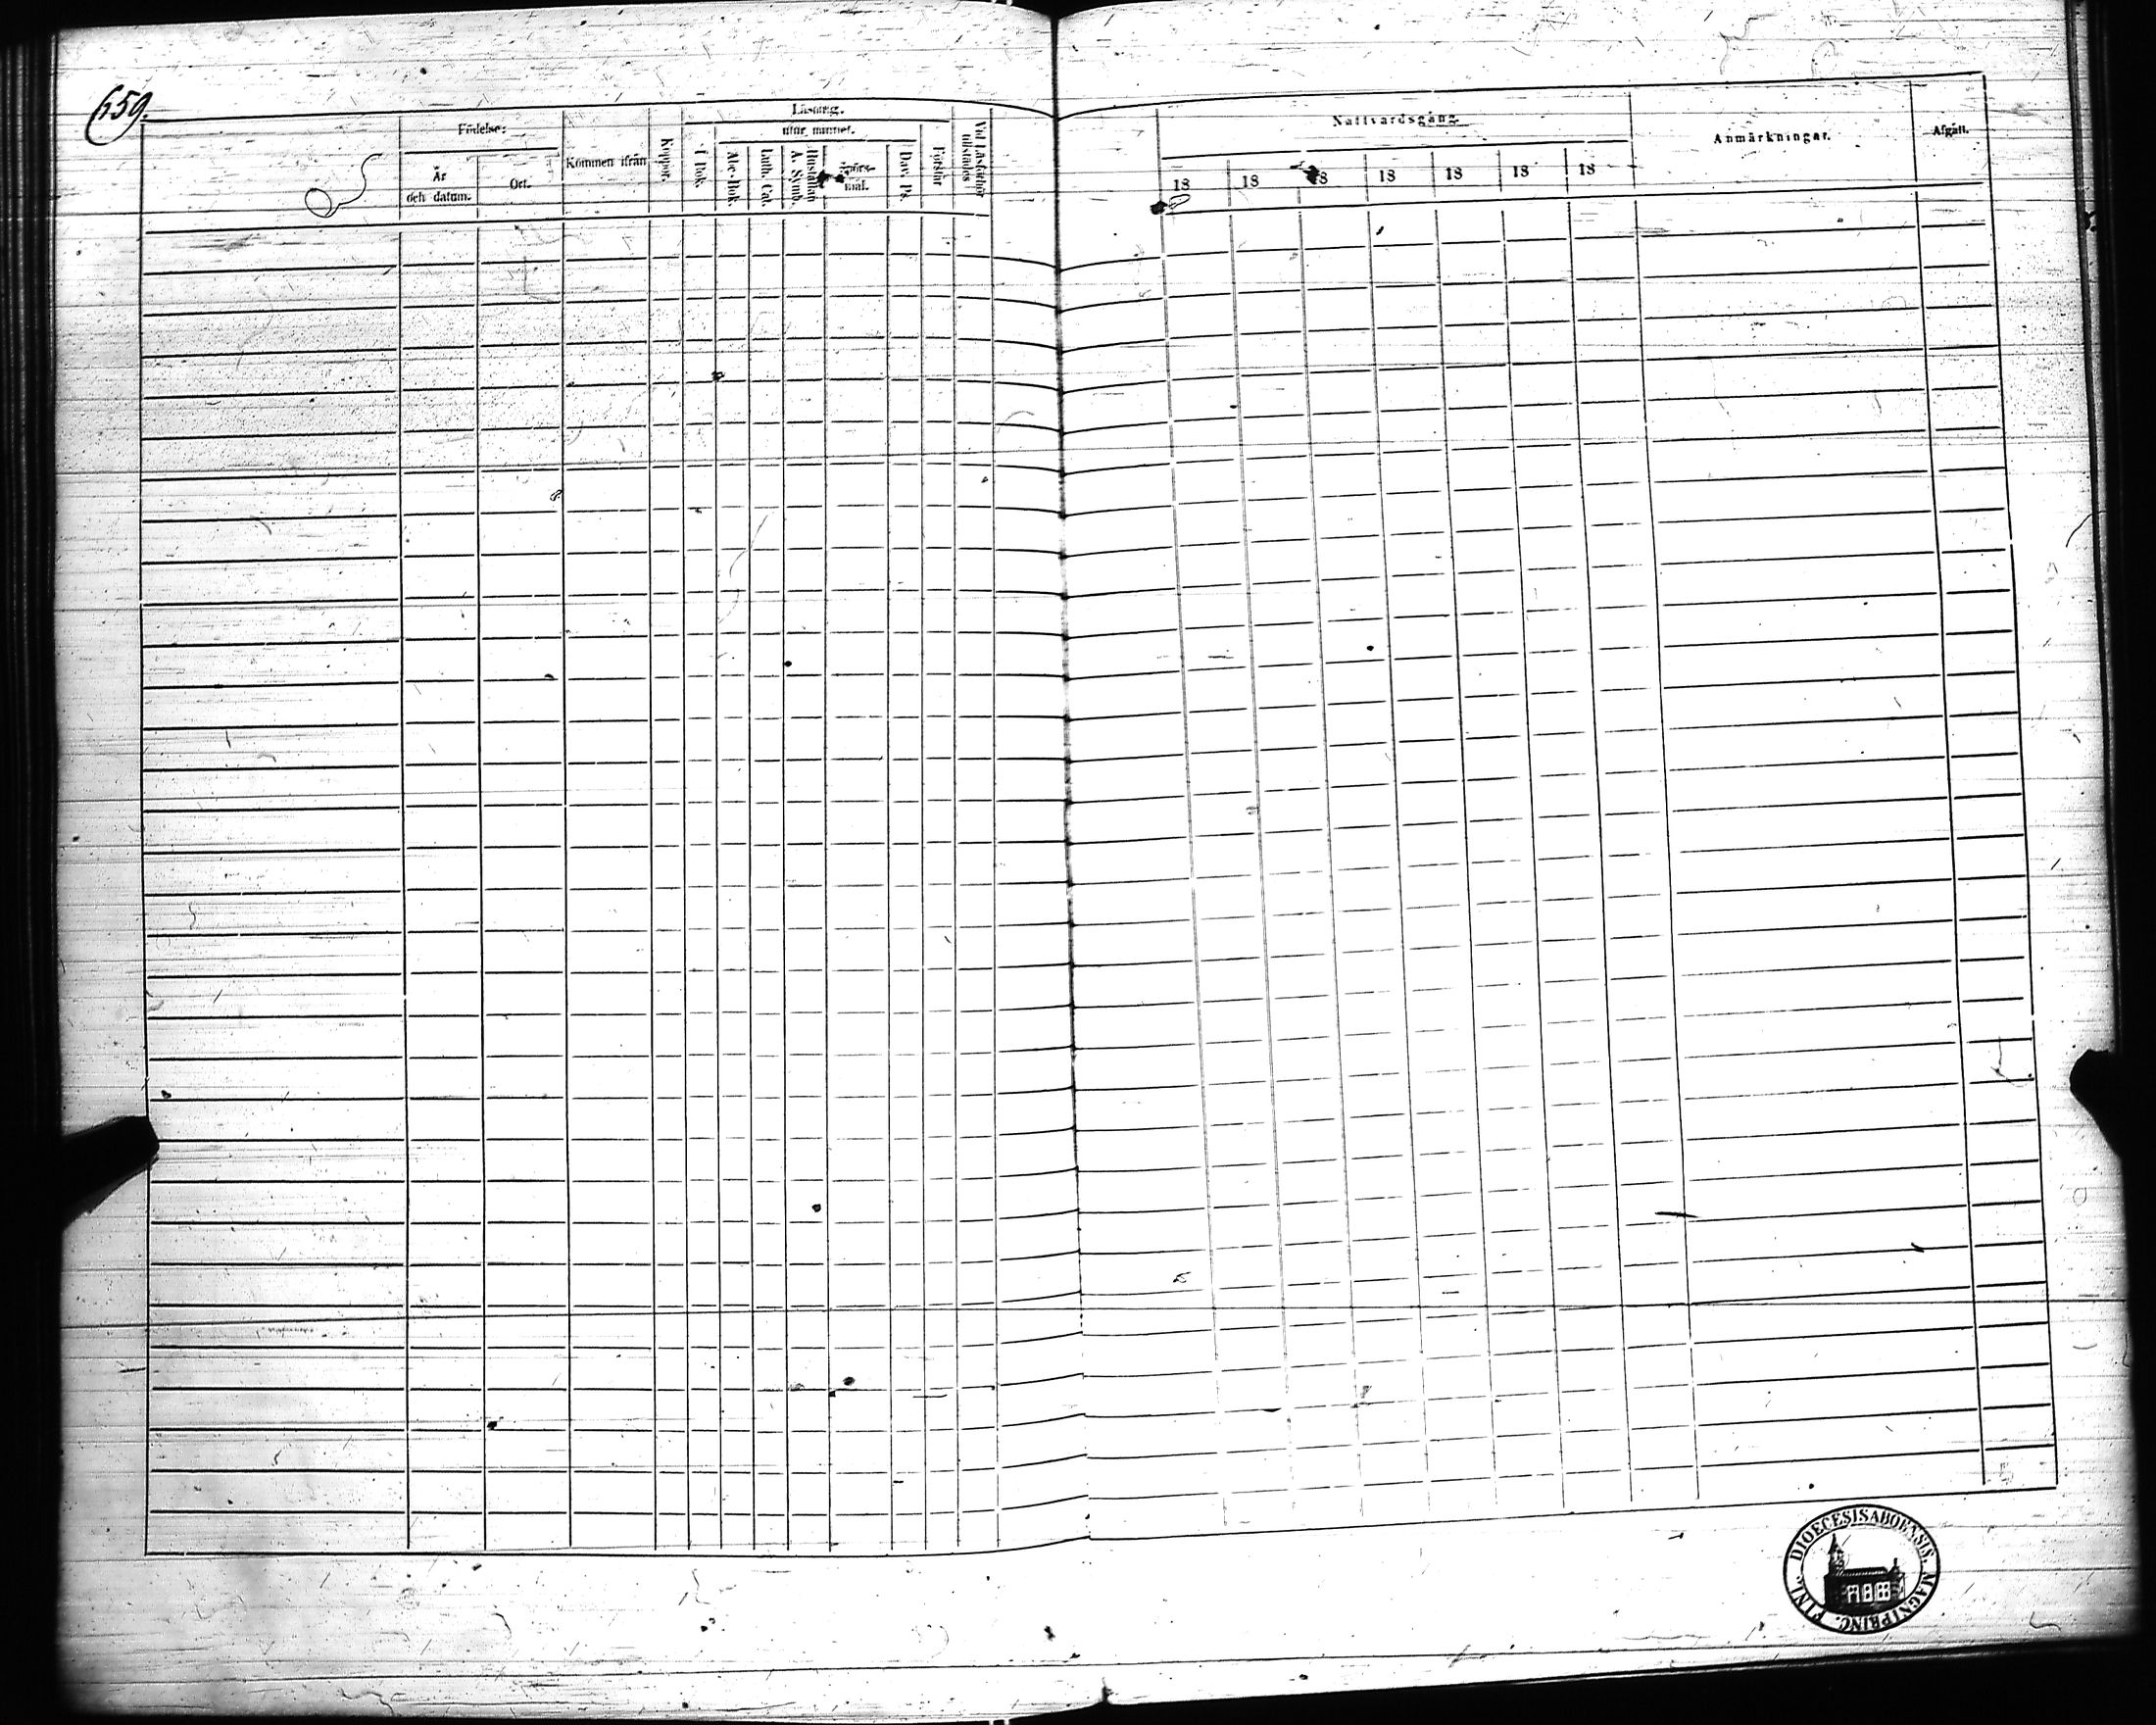 659.
Födelse:
År
och datum.
Ort.
Kommen ifrån
Koppor.
Läsning.
I Bok.
utur minnet.
Abc-Bok.
Luth. Cat.
Hustaflan
A. Symb.
Spörs-
mål.
Dav. Ps.
Förstår
Vid Läsförhör
tillstädes
Nattvardsgång.
18 18 18 18 18 18 18
Anmärkningar.
Afgått.
DIOECESIS ABOENSIS. MAGNI PRINC. FINL.